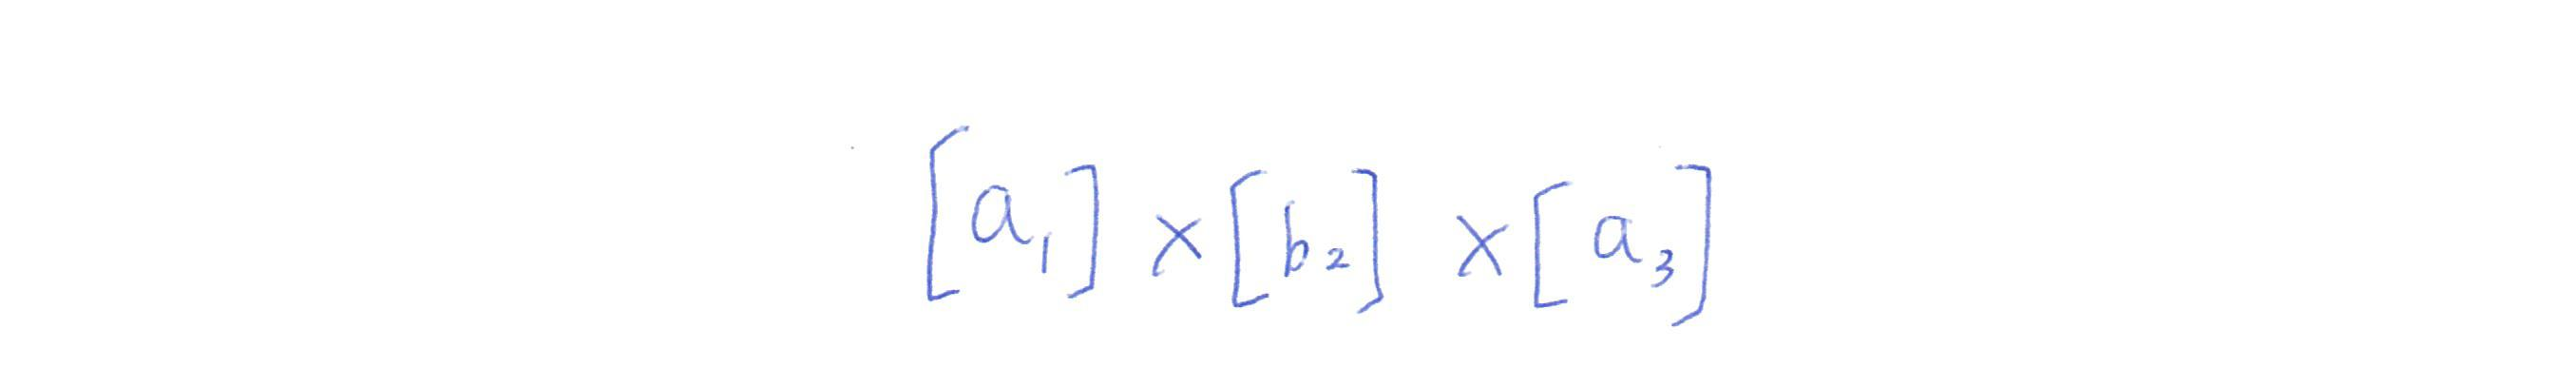 [a₁] × [b₂] × [a₃]